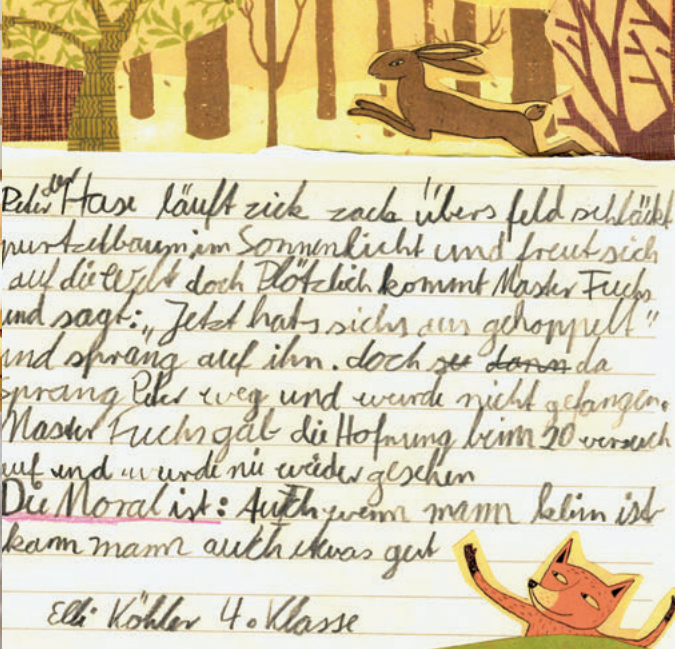 Peter der Hase läuft zick zack übers feld schläckt
purtzelbaum im Sonnenlicht und freut sich
auf die Welt doch Plötzlich kommt Master Fuchs
und sagt: „Jetzt hats sichs aus gehoppelt"
und sprang auf ihn. doch se dann da
sprang Peter weg und wurde nicht gefangen.
Master Fuchs gab die Hofnung beim 20 versuch
auf und wurde nie wieder gesehen
Die Moral ist: Auch wenn mann klein ist
kann mann auch etwas gut
Elli Köhler 4. Klasse